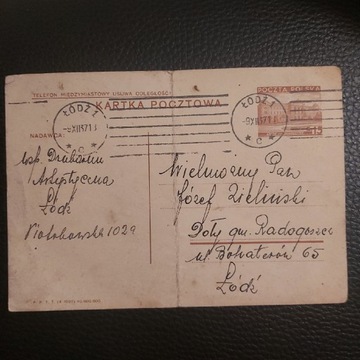 TELEFON MIĘDZYMIASTOWY USUWA ODLEGŁOŚCI
KARTKA POCZTOWA
POCZTA POLSKA
15
ŁÓDŹ 1
ŁÓDŹ 1
* C *
* C *
NADAWCA:
Artystyczna
Łódź
Piotrkowska 102a
Wielmożny Pan
Józef Zieliński
Doły gm. Radogoszcz
ul Bohaterów 65
Łódź